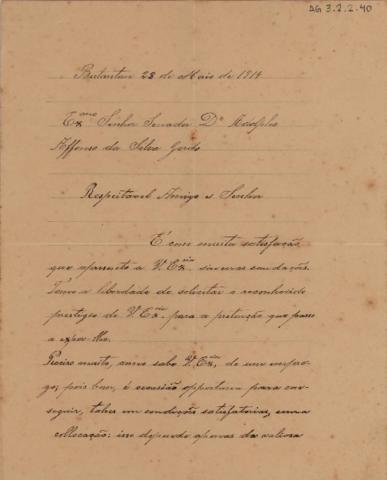 AG 3.2.2.40
Butantan 28 de Maio de 1914
Exmo Senhor Senador Dr Adolpho
Affonso da Silva Gordo
Respeitavel Amigo e Senhor
É com muita satisfação
que apresento a V. Excia sinceras saudações.
Tomo a liberdade de solicitar o reconhecido
prestigio de V. Excia para a pretenção que passo
a expor-lhe.
Preciso muito, como sabe V. Excia, de um empre-
go; pois bem, é occasião opportuna para con-
seguir, talvez em condições satisfatorias, uma
collocação: isso depende apenas da valiosa